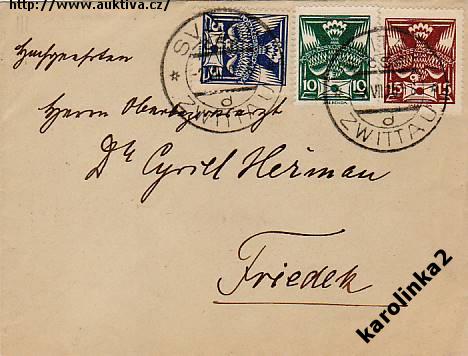 http://www.auktiva.cz/
SV
ZWITTAU
d
5
5
10
10
15
15
VII
ZWITTAU
d
Herrn
Dr Cyrill Heřman
Friedek
karolinka2